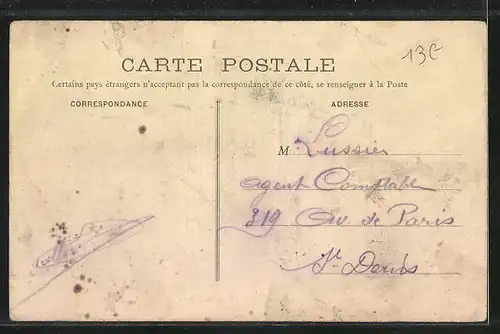 13€
CARTE POSTALE
Certains pays étrangers n'acceptant pas la correspondance de ce côté, se renseigner à la Poste
CORRESPONDANCE
ADRESSE
M. Lussier
Agent Comptable
319 Av. de Paris
St. Denis